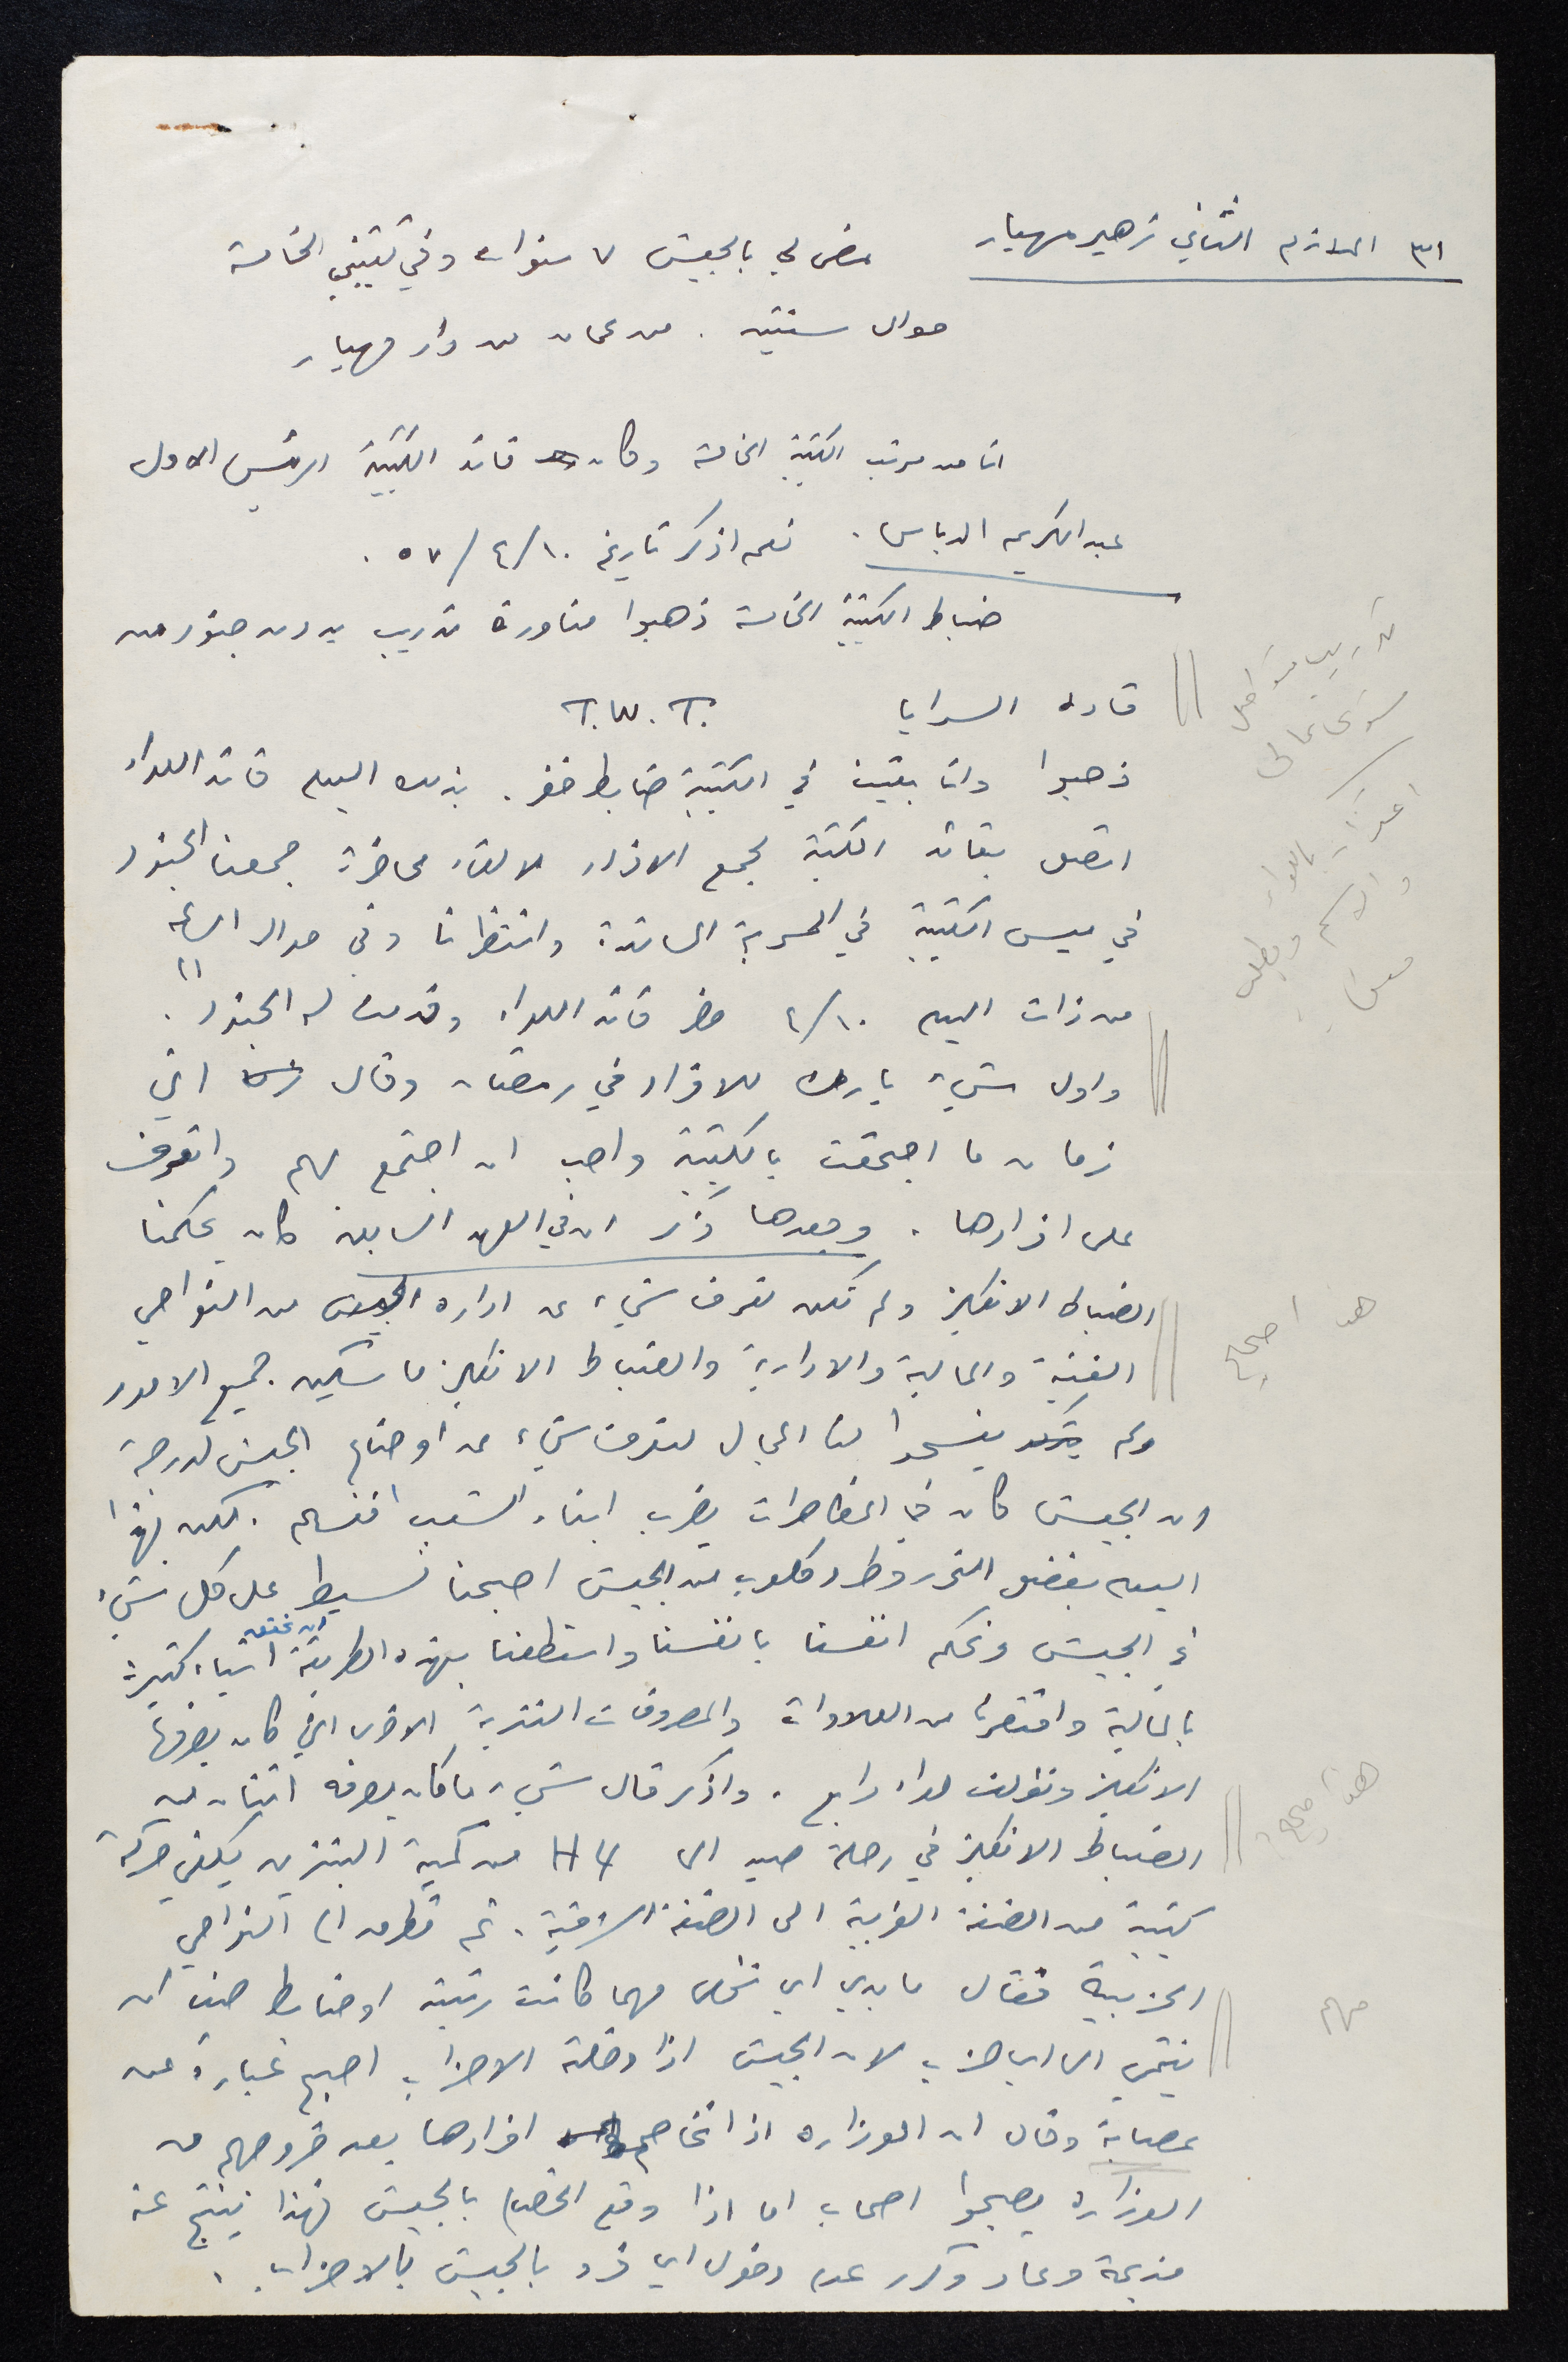 ٣١ الملازم الثاني زهير مهيار مضى لي بالجيش ٧ سنوات وفي كتيبتي الخامسة
حوالي سنتين . من عمان من دار مهيار
انا من مرتب الكتيبة الخامسة وكان قائد الكتيبة الرئيس الاول
عبد الكريم الدباس . نعم اذكر تاريخ ١٠/٤/٥٧ .
ضباط الكتيبة الخامسة ذهبوا مناورة تدريب بدون جنود من
قادة السرايا T.W.T.
ذهبوا وانا بقيت في الكتيبة ضابط خفر . بذلك اليوم قائد اللواء
اتصل بقائد الكتيبة لجمع الافراد لالقاء محاضرة جمعنا الجنود
في ميس الكتيبة في السرية الساندة وانتظرنا وفي حوالي الساعة
١١
من ذات اليوم ١٠/٤ حضر قائد اللواء وقدمت له الجنود .
واول شيء بارك للافراد في رمضان وقال انني
زمان ما اجتمعت بالكتيبة واحب ان اجتمع بهم واتعرف
على افرادها . وبعدها ذكر ان في العهد السابق كان يحكمنا
الضباط الانكليز ولم نكن نعرف شيء عن ادارة الجيش من النواحي
الفنية والمالية والادارية والضباط الانكليز ماسكين جميع الامور
ولم يفسحوا لنا المجال لنعرف شيء عن اوضاع الجيش لدرجة
ان الجيش كان في المظاهرات يضرب ابناء الشعب انفسهم . لكن بهذا
اليوم بفضل التحرر وطرد كلوب من الجيش اصبحنا نسيطر على كل شيء
في الجيش ونحكم انفسنا بانفسنا واستطعنا بهذه الطريقة ان نحقق اشياء كثيرة
بالمالية واقتصرنا من العلاوات والمصروفات النثرية الاخرى التي كان يصرفها
الانكليز وتؤلف لواء رابع . واذكر قال شيء ما كان يصرفه اثنان من
الضباط الانكليز في رحلة صيد الى H4 من كمية البنزين يكفي حركة
كتيبة من الضفة الغربية الى الضفة الشرقية . ثم تطرق الى النواحي
الحزبية فقال ما بدي اي شخص مهما كانت رتبته او ضابط صف ان
ينتمي الى اي حزب لان الجيش اذا دخلته الاحزاب اصبح عبارة عن
عصابة وقال ان الوزارة اذا تخاصم افرادها بعد خروجهم من
الوزارة يصبحوا اصحاب اما اذا وقع الخصام بالجيش فهذا ينتج عنه
مذبحة وعاد وكرر عدم دخول اي فرد بالجيش بالاحزاب .
هذا صحيح
هذا صحيح
مهم